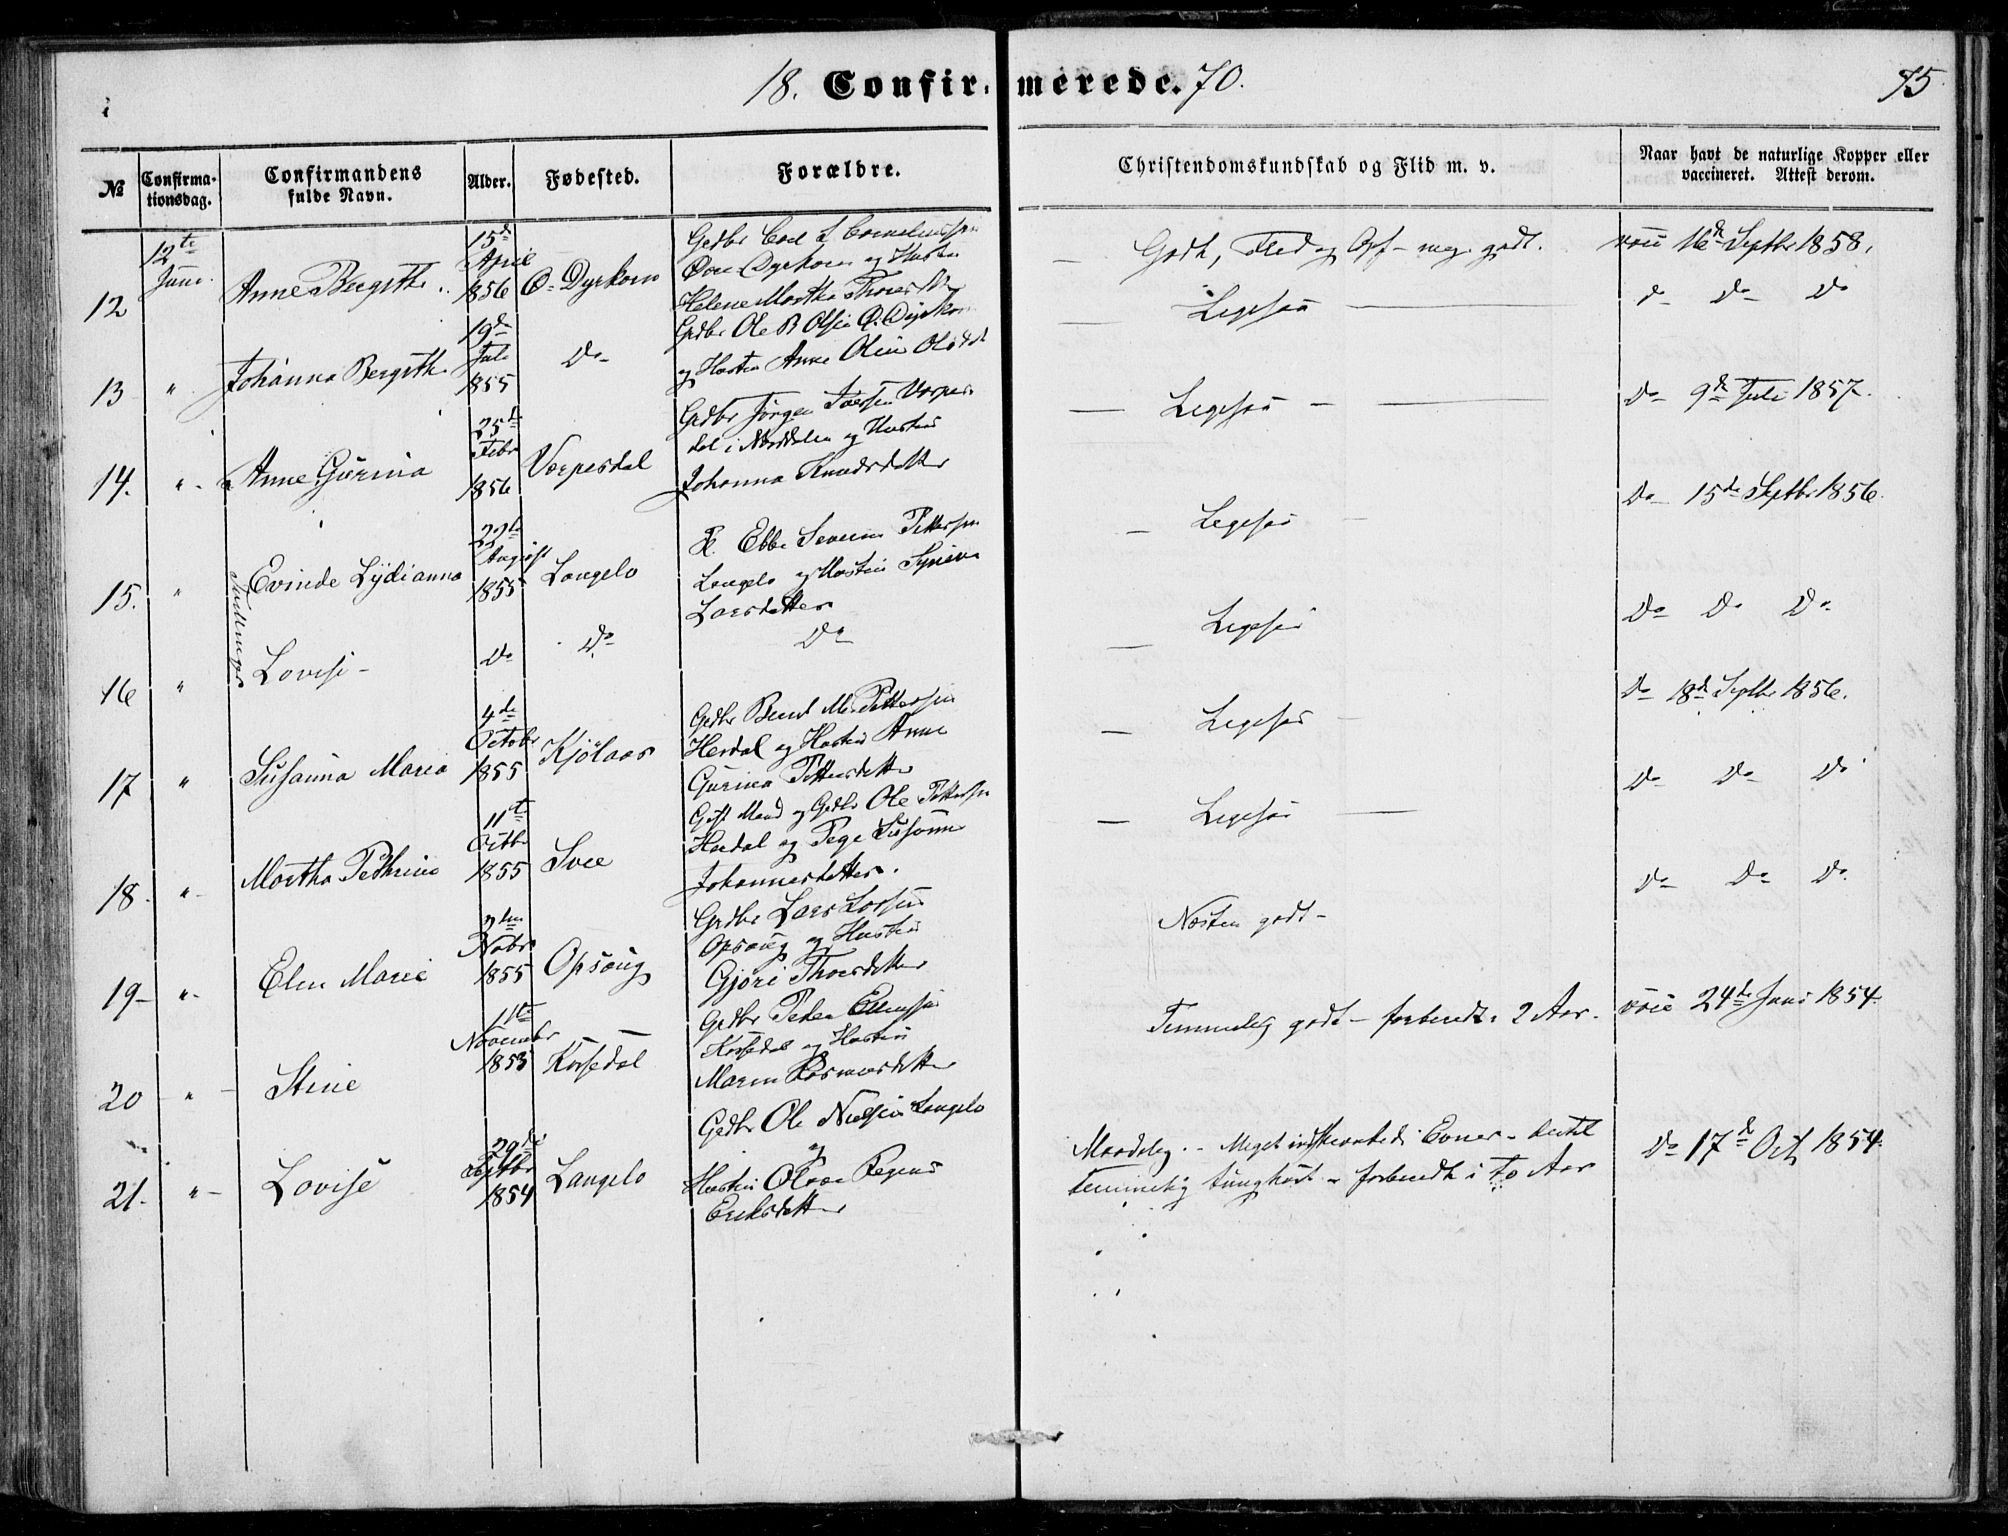 18. Confirmerede. 70.
75
№
Confirmationsdag.
Confirmandens fulde Navn.
Alder.
Fødested.
Forældre.
Christendomskundskab og Flid m. v.
Naar havt de naturlige Kopper eller vaccineret. Attest derom.
12
12te Juni
Anne Bergithe
15de April 1856
Ø. Dyrkorn
Gedbr
Dyrkorn og Hustru
Helene Martha
Godt, Flid og Opf meg. godt.
16de Septbr 1858.
13
"
Johanna Bergith
19de Juli 1855
Do
Gdbr Ole B Olsen Ø. Dyrkorn
og Hustru Anne Oline
Ligesaa
do Do Do
14.
"
Anne Gurina
25de Febr 1856
Verpesdal
Gdbr Jørgen Iversen Verpes
dal i Norddalen og Hustru
Johanna Knudsdatter
Ligesaa
Do 9de Juli 1857.
15.
"
Tvillinger
Evinde Lydianna
22de August 1855
Langelo
Ebbe Severin Pettersen
Langelo og Hustru Synneva
Larsdatter
Ligesaa
Do 15de Septbr 1856.
16
"
Lovise
Do
Do
Do
Ligesaa
Do Do Do
17
"
Susanna Maria
4de Octobr 1855
Kjølaas
Gedbr Bernt M. Pettersen
Herdal og Hustru Anne
Gurina Pettersdatter
Ligesaa
Do 18de Septbr 1856.
18.
"
Martha Pethrine
11te Octbr 1855
Gift Mand og Gedbr Ole Pettersen
Herdal og Pige Susanne
Johannesdatter.
Ligesaa
Do Do Do
19
"
Elen Marie
Nobr 1855
Opsaug
Gedbr Lars Larsen
Opsaug og Hustru
Gjøri Thoresdatter
Næsten godt
Do Do Do
20
"
Stine
11te Novembr 1853
Korsedal
Gedbr Peder
Korsedal og Hustru
Maren Rasmusdatter
Temmelig godt – forberedt i 2 Aar.
24de Juni 1854
21.
"
Lovise
29de Septbr 1854
Langelo
Gedbr Ole Nielsen Langelo
og
Hustru Regine
Eriksdatter
Maadelig. Meget indskrænkede Evner
temmelig tunghørt – forberedt i to Aar
Do 17de Oct 1854.